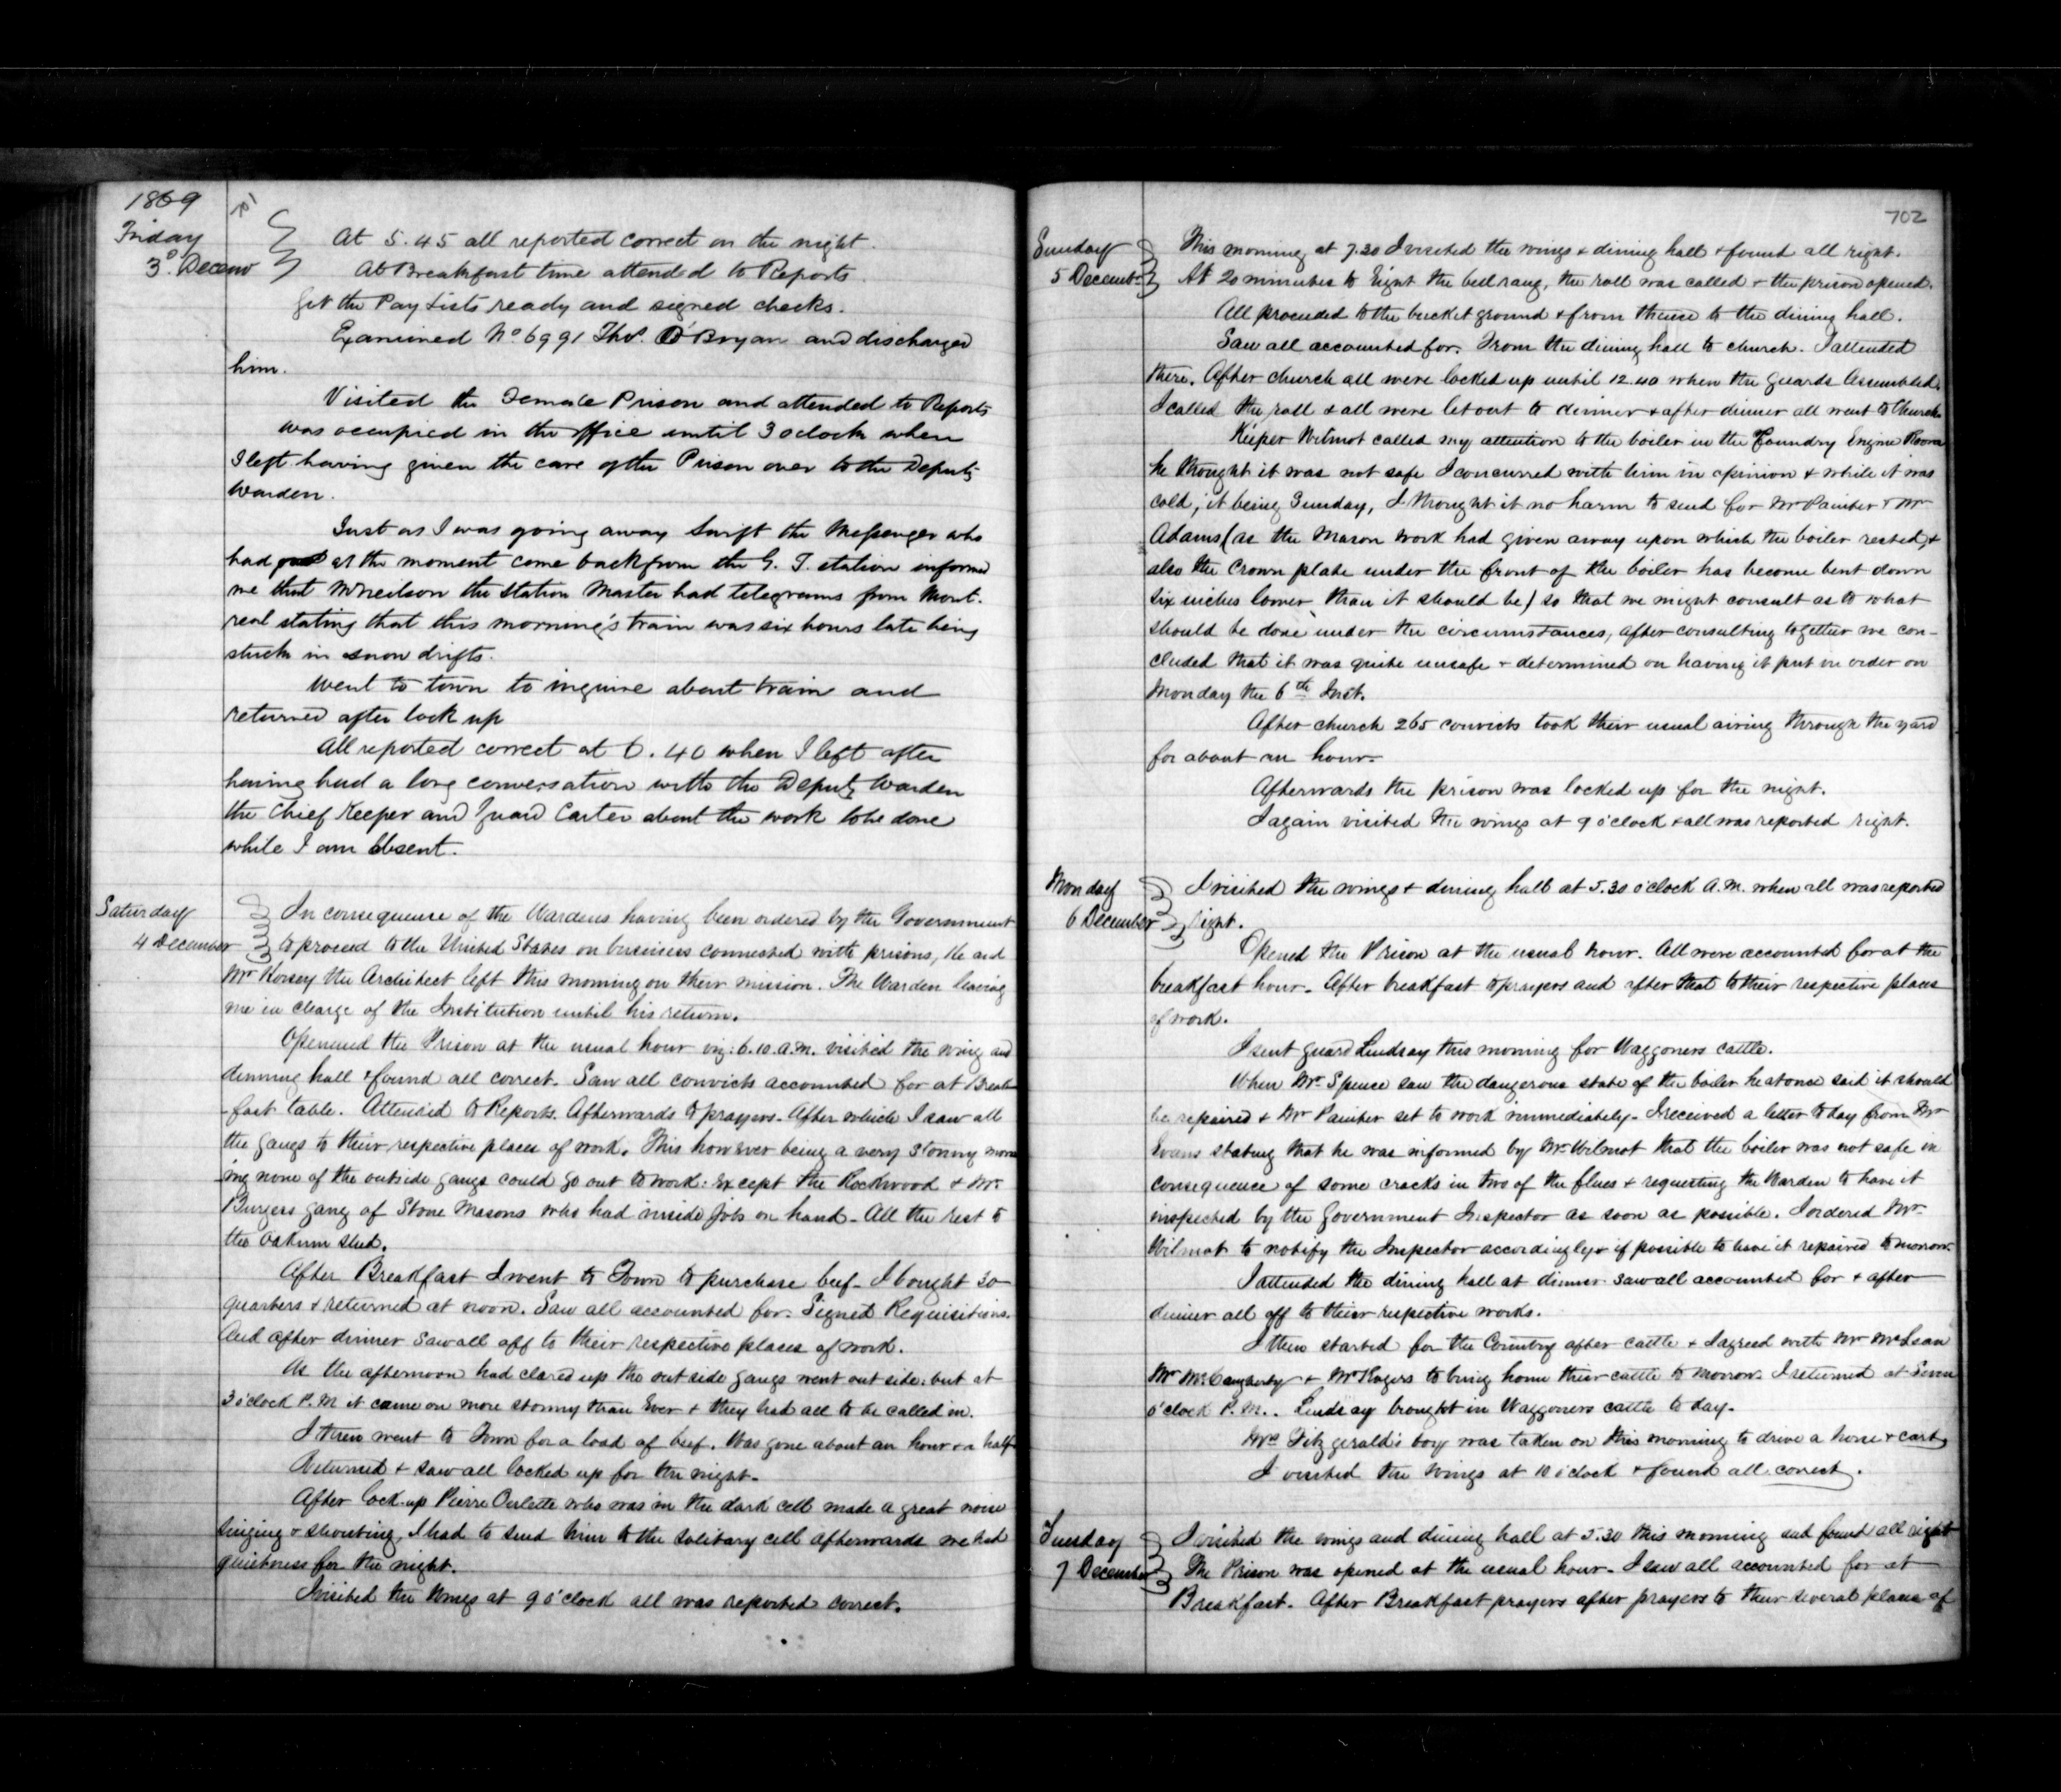 1869
701
Friday
3d. Decem
At 5.45 all reported correct on the night.
At Breakfast time attended to Reports.
Got the Pay Lists ready and signed checks.
Examined No 6991 Thos. O'Bryan and discharged
him.
Visited the Female Prison and attended to Reports
was occupied in the office until 3 oclock when
I left having given the care of the Prison over to the Deputy
Warden.
Just as I was going away Swift the Messenger who
had at the moment come back from the G. T. station informed
me that the Station Master had telegrams from Mont-
real stating that this morning's train was six hours late being
stuck in snow drifts.
Went to town to inquire about train and
returned after lock up
All reported correct at 6.40 when I left after
having had a long conversation with the Deputy Warden
the Chief Keeper and Guard Carter about the work to be done
while I am absent.
Saturday
4 December
In consequence of the Wardens having been ordered by the Government
to proceed to the United States on business connected with prisons, He and
Mr Horsey the Architect left this morning on their mission. The Warden leaving
me in charge of the Institution until his return.
Openned the Prison at the usual hour viz: 6.10 a.m. visited the wing and
dinning hall & found all correct. Saw all convicts accounted for at Break-
-fast table. Attended to Reports. Afterwards to prayers. After which I saw all
the gangs to their respective places of work. This however being a very stormy morn
-ing none of the outside gangs could go out to work: Except the Rockwood & Mr
Burgess gang of Stone Masons who had inside jobs on hand - All the rest to
the Oakum shed.
After Breakfast I went to Town to purchase beef - I bought 30
quarters & returned at noon. Saw all accounted for. Signed Requisitions.
And after dinner saw all off to their respective places of work.
As the afternoon had clared up the out side gangs went out side: but at
3 o'clock P.M it came on more stormy than Ever & they had all to be called in.
I then went to Town for a load of beef. Was gone about an hour & a half
Returned & saw all locked up for the night -
After lock-up Pierre who was in the dark cell made a great noise
singing & shouting, I had to send him to the solitary cell afterwards we had
quietness for the night.
I visited the Wings at 9 o'clock all was reported correct.
702
Sunday
5 December
This morning at 7.30 I visited the wings & dining hall & found all right.
At 20 minutes to Eight the bell rang, the roll was called & the prison opened.
All proceeded to the bucket ground & from thence to the dining hall.
Saw all accounted for. From the dining hall to church. I attended
there. After church all were locked up until 12.40 when the guards Assembled.
I called the roll & all were let out to dinner & after dinner all went to Church
Keeper Wilmot called my attention to the boiler in the Foundry Engine Room
he thought it was not safe I concurred with him in opinion & while it was
cold, it being Sunday, I thought it no harm to send for Mr Painter & Mr
Adams (as the Mason work had given away upon which the boiler rested, &
also the Crown plate under the front of the boiler has become bent down
six inches lower than it should be) so that we might consult as to what
should be done under the circumstances, after consulting together we con-
cluded that it was quite unsafe & determined on having it put in order on
Monday the 6th Inst.
After church 265 convicts took their usual airing through the yard
for about an hour -
Afterwards the prison was locked up for the night.
I again visited the wings at 9 o'clock & all was reported right.
Monday
6 December
I visited the wings & dining hall at 5.30 o'clock A.M. when all was reported
right.
Opened the Prison at the usual hour. All were accounted for at the
breakfast hour. After breakfast to prayers and after that to their respective places
of work.
I sent guard Lindsay this morning for Waggoners cattle.
When Mr Spence saw the dangerous state of the boiler he at once said it should
be repaired & Mr Painter set to work immediately - I received a letter to day from Mr
Evans stating that he was informed by Mr Wilmot that the boiler was not safe in
consequence of some cracks in two of the flues & requesting the Warden to have it
inspected by the Government Inspector as soon as possible. I ordered Mr
Wilmot to notify the Inspector accordingly & if possible to have it repaired to morrow.
I attended the dining hall at dinner saw all accounted for & after
dinner all off to their respective works.
I then started for the Country after cattle & I agreed with Mr McLean
Mr & Mr Rogers to bring home their cattle to morrow. I returned at Seven
o'clock P.M. Lindsay brought in Waggoners cattle to day.
Mrs Fitzgerald's boy was taken on this morning to drive a horse & cart
I visited the wings at 10 o'clock & found all correct.
Tuesday
7 December
I visited the wings and dining hall at 5.30 this morning and found all right
The Prison was opened at the usual hour - I saw all accounted for at
Breakfast. After Breakfast prayers after prayers to their several places of